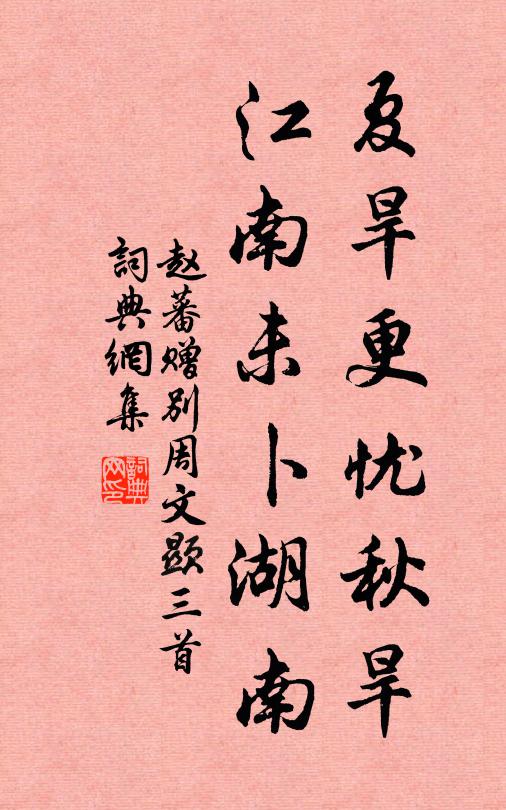 夏旱更忧秋旱
江南未卜湖南
赵蕃赠别周文显三首
詞典網集
詞典网印